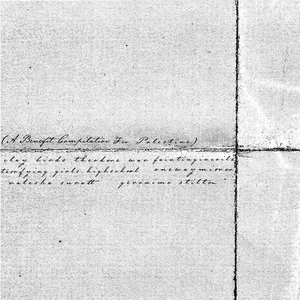 (A Benefit Compilation For Palestine)
clay birds theodore war faintingincoils
terrifying girls highschool onewaymirror
valeska suratt geronimo stilton